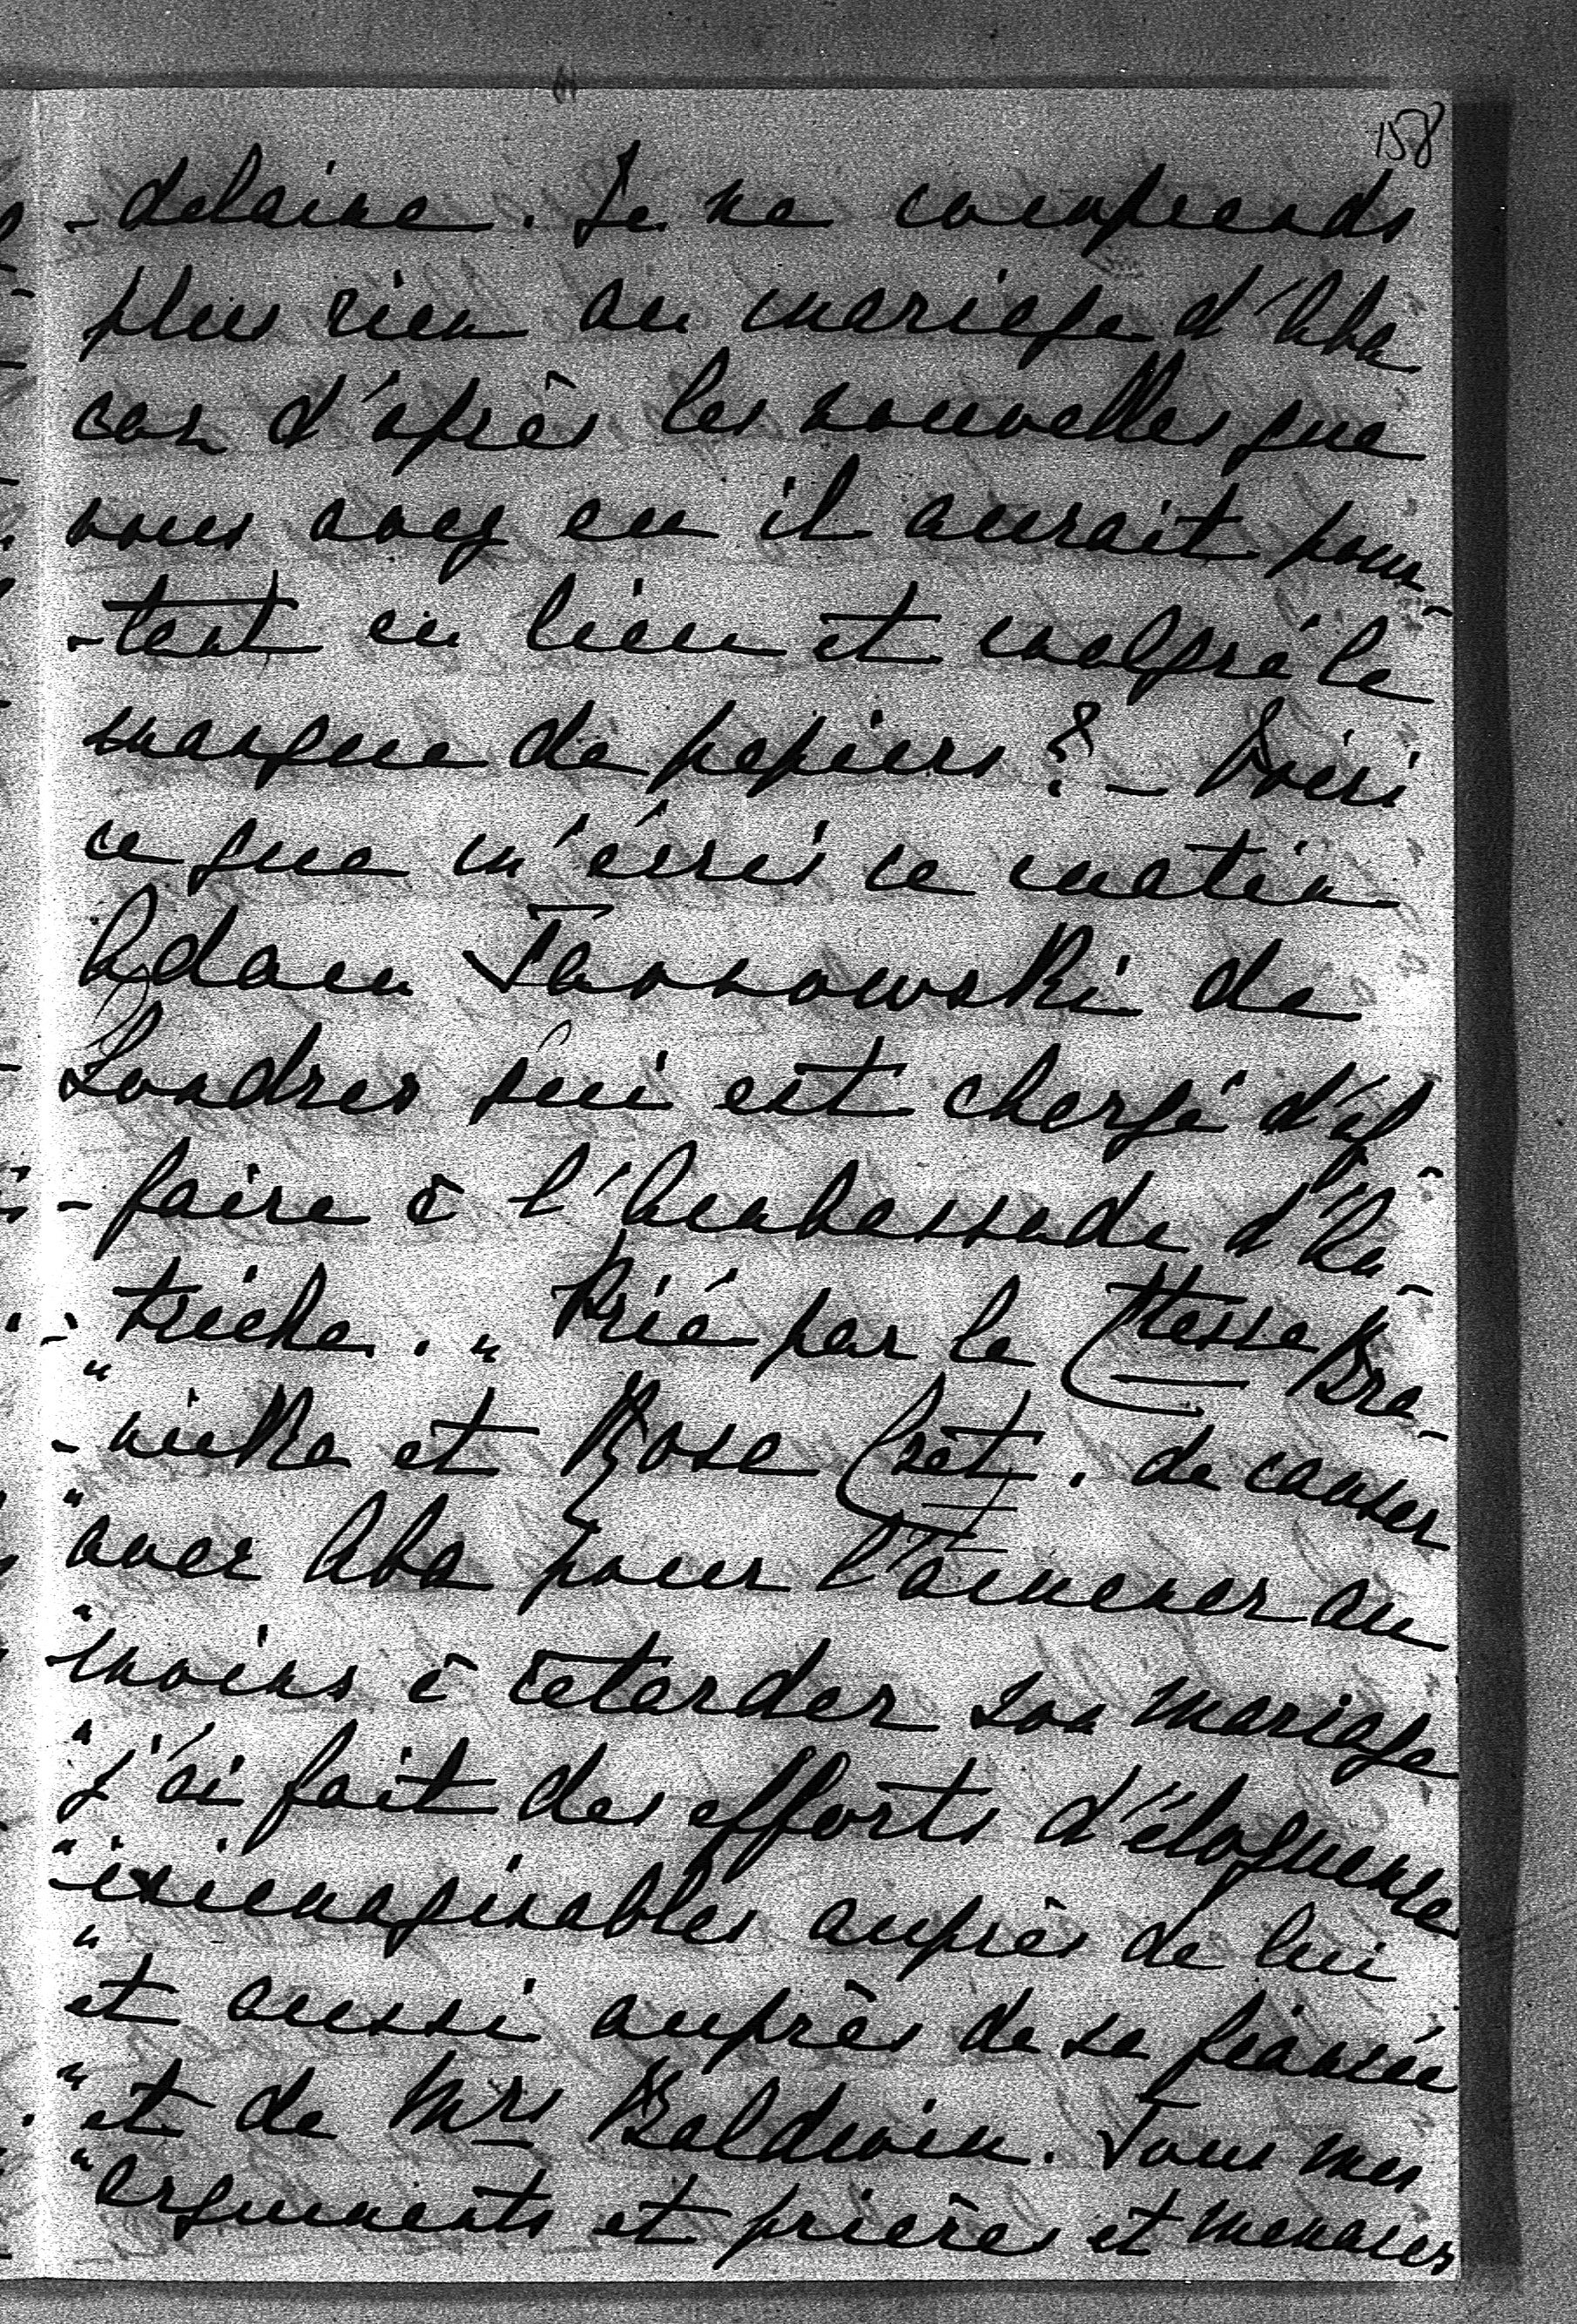 158
-delaine. Je ne comprends
plus rien au mariage d'Aba
car d'après les nouvelles que
vous avez eu il aurait pour-
-tant eu lieu et malgré le
manque de papiers ? - Voici
ce que m'écris ce matin
Adam Tarnowski de
Londres qui est chargé d'af-
-faire à l'Ambassade d'Au-
-triche. " Prié par la Ctesse Bra-
"-nicka et Rose de causer
"avec Aba pour l'amener au
"moins à retarder son mariage
"j'ai fait des efforts d'éloquence
"inimaginables auprès de lui
"et aussi auprès de sa fiancée
"et de Mrs Baldwin. Tous mes
"arguments et prières et menaces